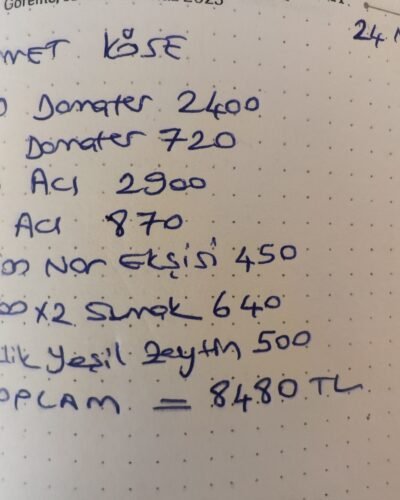 2023
24
MET KÖSE
0 Domates 2400
Domates 720
Acı 2900
Acı 870
00 Nar Ekşisi 450
00 x2 Sumak 640
lik Yeşil Zeytin 500
OPLAM = 8480 TL